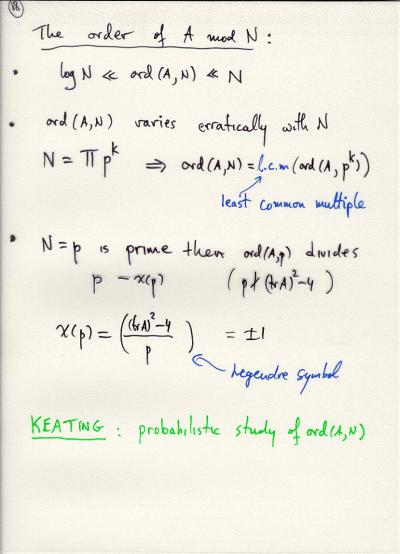 18
The order of A mod N :
• log N ≪ ord (A, N) ≪ N
• ord (A, N) varies erratically with N
N = Π p^k ⟹ ord (A, N) = l.c.m (ord (A, p^k))
least common multiple
• N = p is prime then ord(A,p) divides
p - χ(p) ( p ∤ (trA)² - 4 )
χ(p) = ( (trA)² - 4 / p ) = ±1
Legendre symbol
KEATING : probabilistic study of ord (A, N)